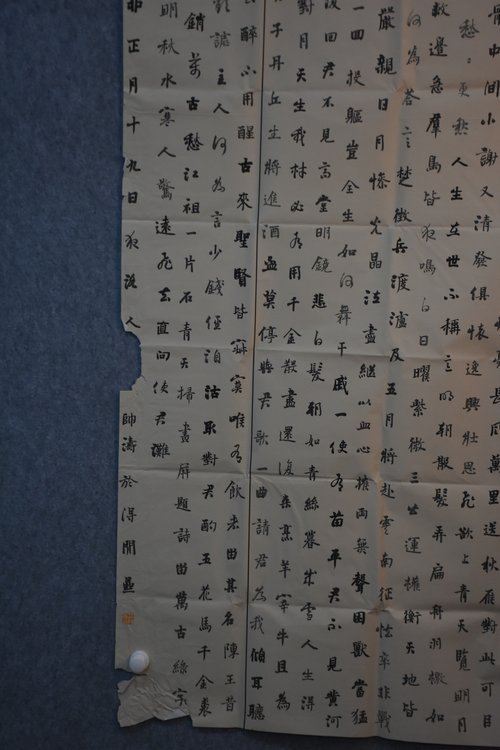 萬里送秋雁對此可
骨中間小謝又清發俱懷逸興壯思飛欲上青天覽明月
愁〻更愁人生在世不稱意明朝散髮弄扁舟羽檄如
救邊急群鳥皆夜鳴白日曜紫微三公運權衡天地皆
何為答言楚徵兵渡瀘及五月將赴雲南征怯卒非戰
嚴親日月慘光晶泣盡繼以血心摧兩無聲困獸當猛
一回投軀豈全生如何舞干戚一使有苗平君不見黃河
復回君不見高堂明鏡悲白髮朝如青絲暮成雪人生得
對月天生我材必有用千金散盡還復來烹羊宰牛且為
子丹丘生將進酒盃莫停與君歌一曲請君為我傾耳聽
醉不用醒古來聖賢皆寂寞唯有飲者留其名陳王昔
謔主人何為言少錢徑須沽取對君酌五花馬千金裘
銷萬古愁江祖一片石青天掃畫屏題詩留萬古綠字
明秋水寒人驚遠飛去直向使君灘
正月十九日夜 人 帥濤於得閒